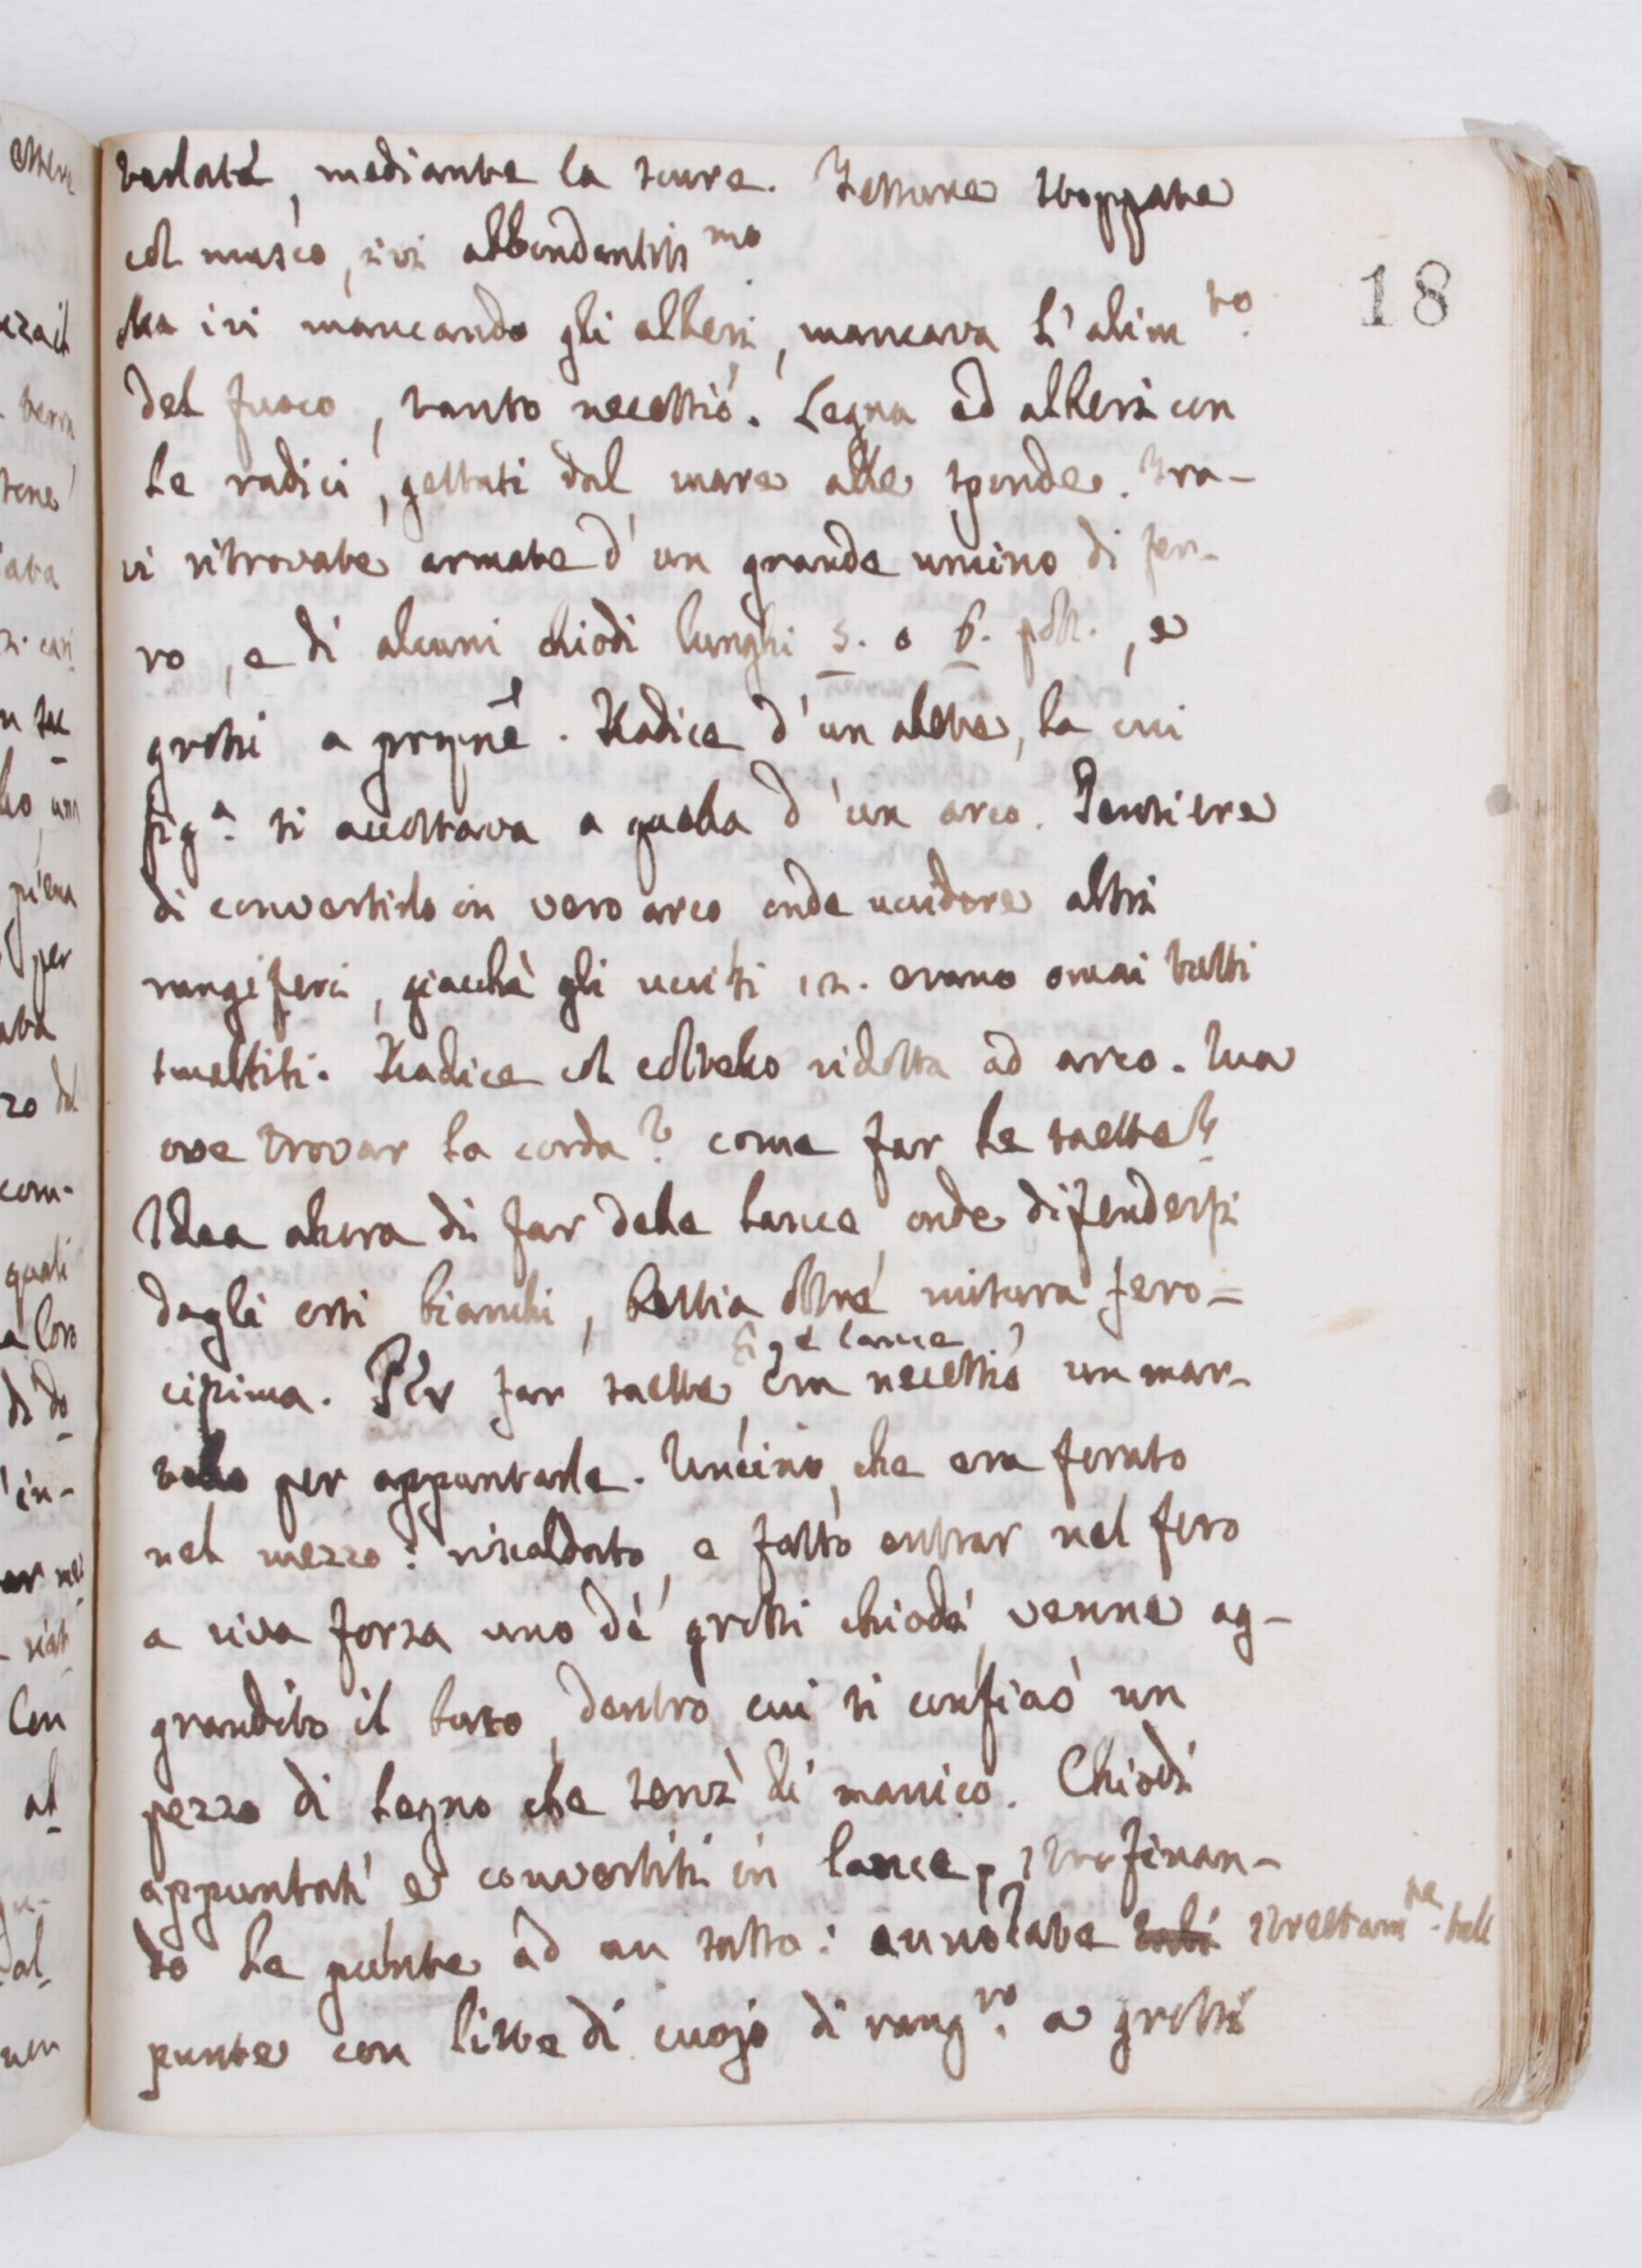 tarlate, mediante la scure. Fessure stoppate
col musco, ivi abbondantiss.mo
Ma ivi mancando gli alberi, mancava l'alim.to
18
del fuoco, tanto necessio. Legna ed alberi con
le radici, gettati dal mare alle sponde. Tra-
vi ritrovate armate d'un grande uncino di fer-
ro, e di alcuni chiodi lunghi 5. o 6. poll., e
grossi a propne. Radice d'un albero, la cui
fig.a si accostava a quella d'un arco. Pensiere
di convertirlo in vero arco onde uccidere altri
rangiferi, giacchè gli uccisi 12. erano omai tutti
smaltiti. Radice col coltello ridotta ad arco. Ma
ove trovar la corda? come far le saette?
Idea allora di far delle lance onde difendersi
dagli orsi bianchi, bestia oltre misura fero=
cissima. Per far saette era necessio un mar-
e lance
tello per appuntarle. Uncino, che era forato
nel mezzo: riscaldato, e fatto entrar nel foro
a viva forza uno de' grossi chiodi, venne ag-
grandito il buso, dentro cui si conficcò un
pezzo di legno che servì di manico. Chiodi
appuntati e convertiti in lance, strofinan-
do le punte ad un sasso: annodate tali strettam.te tali
punte con liste di cuojo di rang.ro a grossi